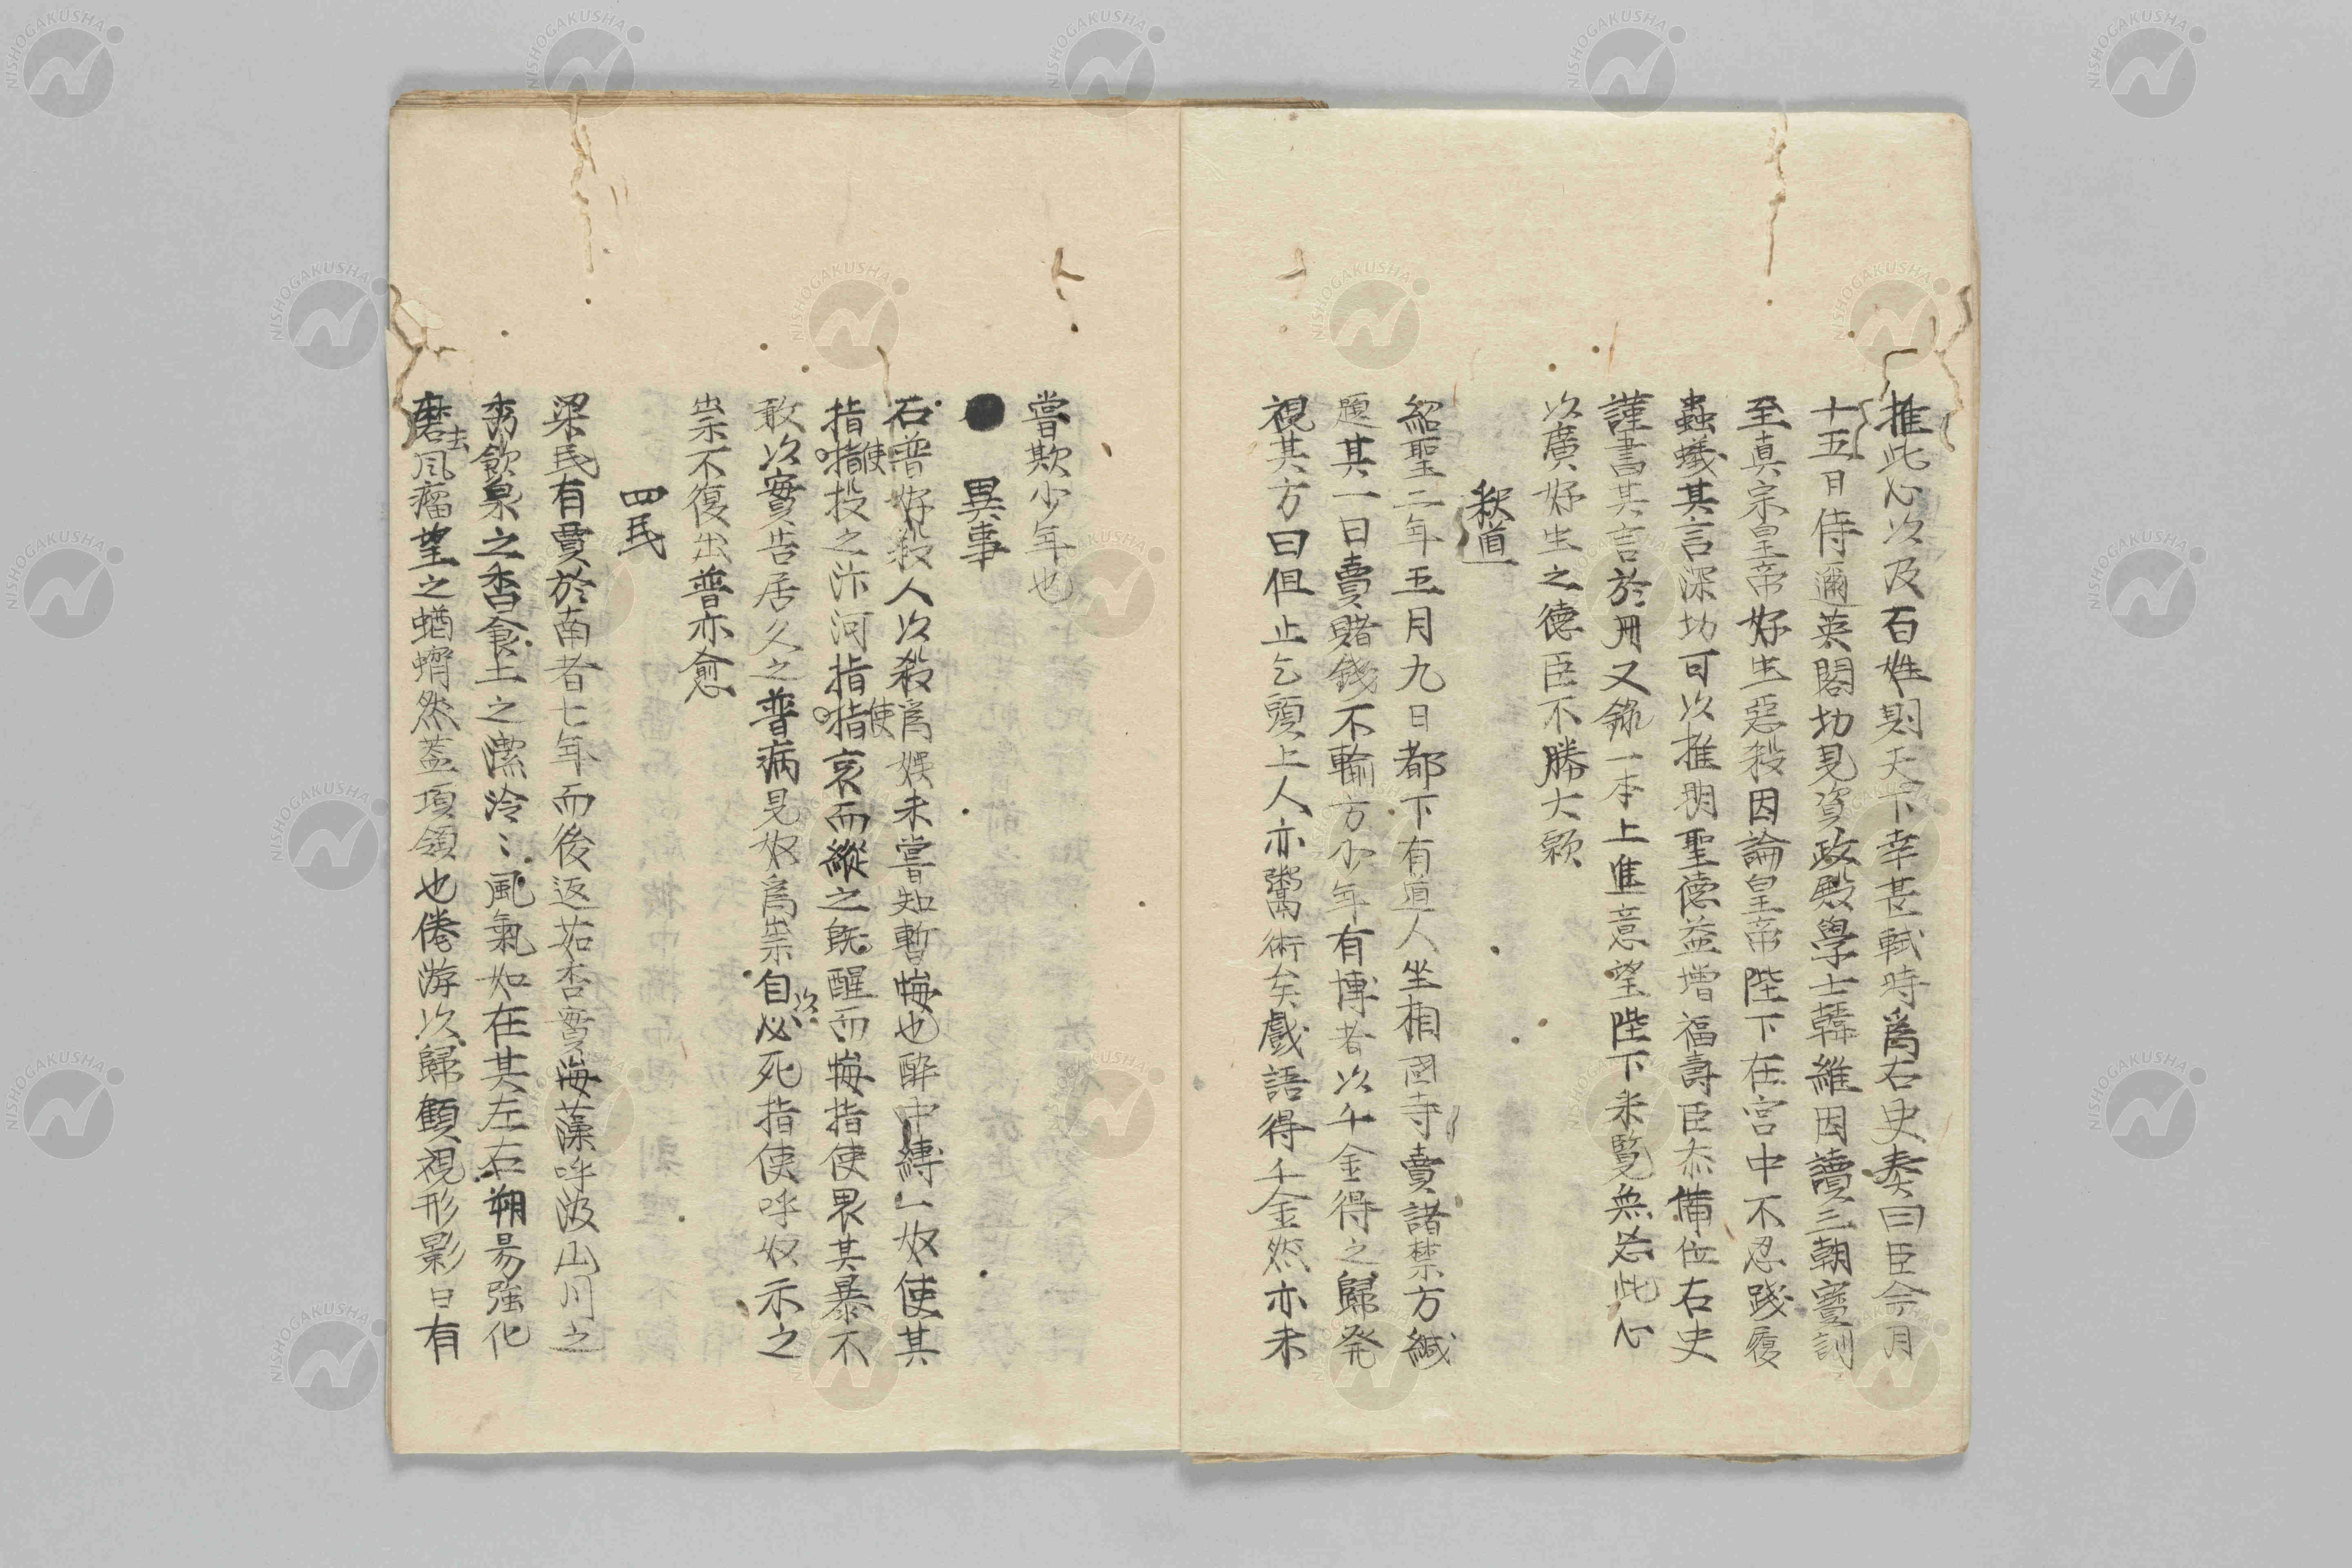 推此心以及百姓則天下幸甚軾時為右史奏曰臣今月
十五日侍邇英閣切見資政殿學士韓維因讀三朝寶訓
至真宗皇帝好生惡殺因論皇帝陛下在宮中不忍踐履
蟲蟻其言深切可以推明聖德益增福壽臣忝備位右史
謹書其言於冊又錄一本上進意望陛下采覧無忘此心
以廣好生之德臣不勝大願
釈道
紹聖二年五月九日都下有道人坐相國寺賣諸禁方緘
題其一曰賣賭錢不輸方少年有博者以千金得之歸発
視其方曰但止乞頭上人亦鬻術矣戲語得千金然亦未
嘗欺少年也
異事
石普好殺人以殺為娯未嘗知暫悔也醉中縛一奴使其
指指使投之汴河指指使哀而縱之既醒而悔指使畏其暴不
敢以實告居久之普病見奴為祟自以必死指使呼奴示之
祟不復出普亦愈
四民
梁民有賈於南者七年而後返茹杏實海藻呼汲山川之
秀飲泉之香食土之潔泠〻風氣如在其左右朔易強化
磨去風瘤望之蝤蠐然蓋項領也倦游以歸顧視形影日有
NISHOGAKUSHA